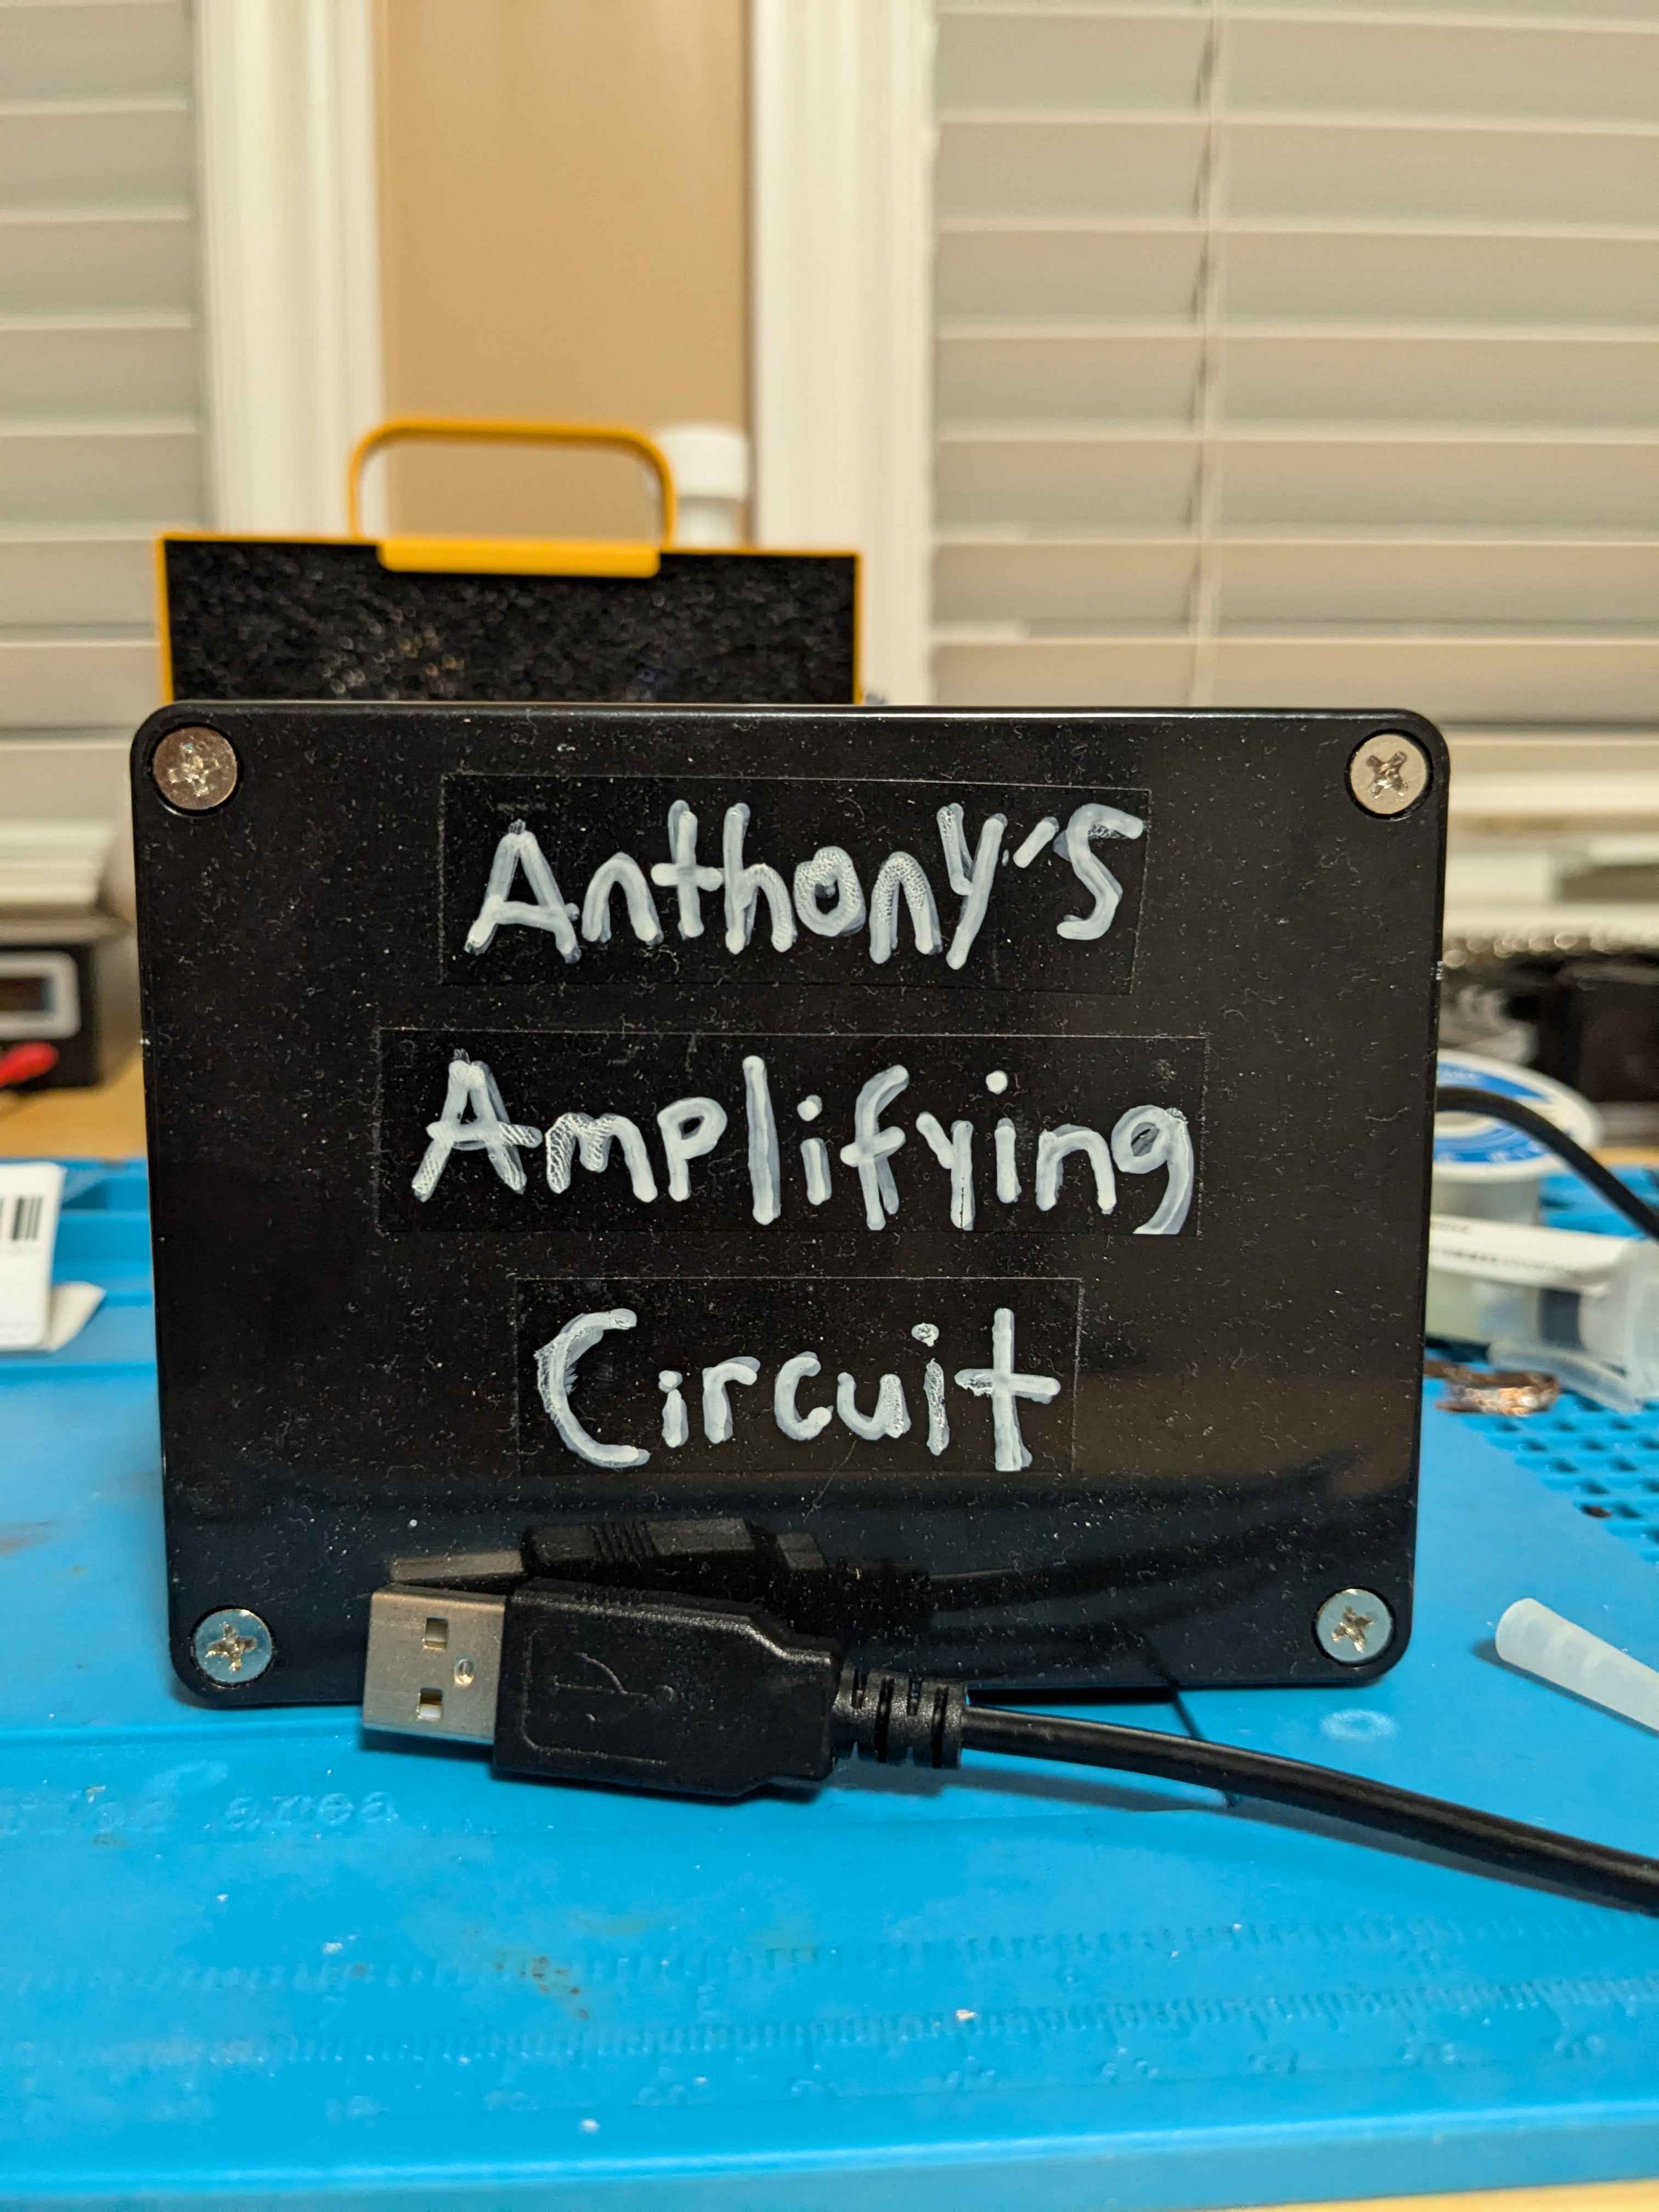 Anthony's
Amplifying
Circuit
area